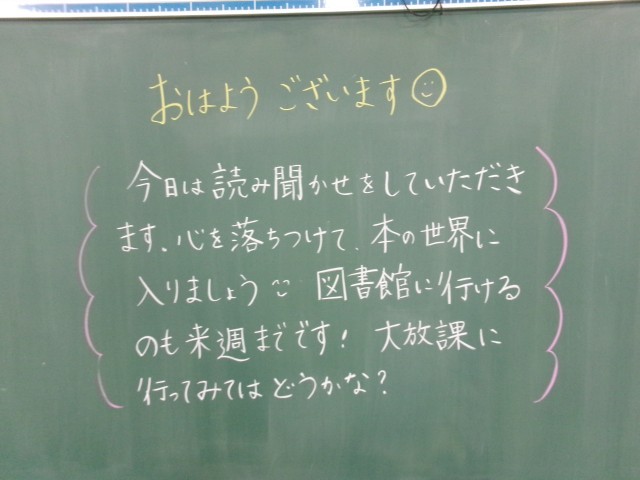 おはようございます
今日は読み聞かせをしていただき
ます、心を落ちつけて、本の世界に
入りましょう 図書館に行ける
のも来週までです! 大放課に
行ってみてはどうかな?